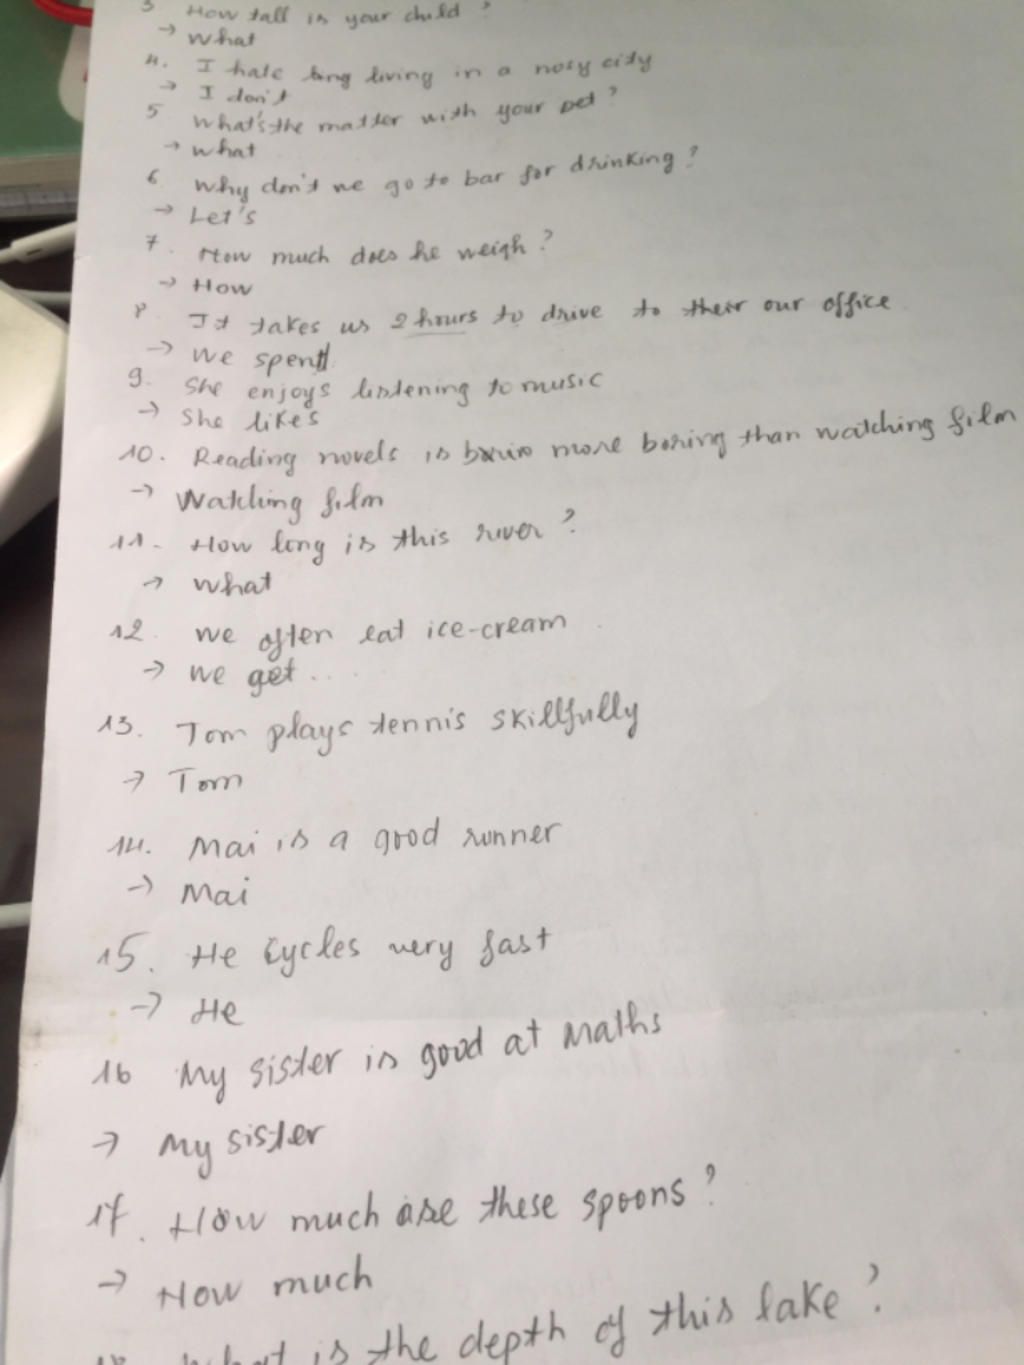 3 How tall is your child ?
→ What
4. I hate living in a nosy city
→ I don't
5 What's the matter with your pet ?
→ what
6 Why don't we go to bar for drinking ?
→ Let's
7. How much does he weigh ?
→ How
8. It takes us 2 hours to drive to their our office
→ We spend
9. She enjoys listening to music
→ She likes
10. Reading novels is more boring than watching film
→ Watching film
11. How long is this river ?
→ What
12. We often eat ice-cream
→ We get ....
13. Tom plays tennis skillfully
→ Tom
14. Mai is a good runner
→ Mai
15. He cycles very fast
→ He
16 My sister is good at Maths
→ My sister
17. How much are these spoons ?
→ How much
What is the depth of this lake ?